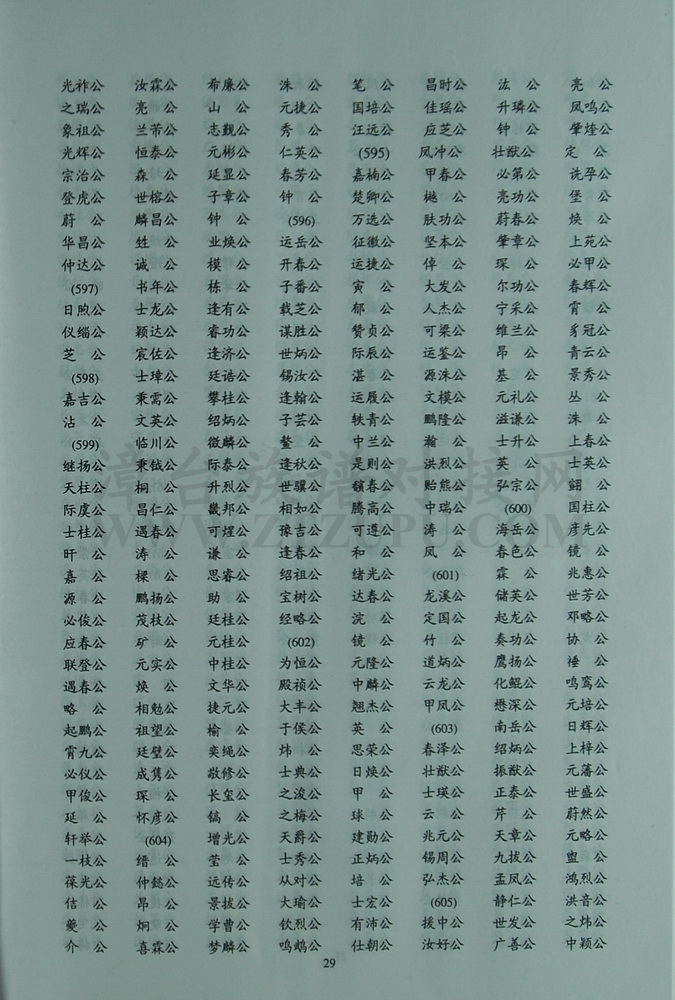 光祚公 汝霖公 希廉公 洙公 笔公 昌时公 汯公 亮公
之瑞公 亮公 山公 元捷公 国培公 佳瑶公 升璘公 凤鸣公
象祖公 兰芾公 志觐公 秀公 汪远公 应芝公 钟公 肇煃公
光辉公 恒泰公 元彬公 仁英公 (595) 凤冲公 壮猷公 定公
宗治公 森公 廷显公 春芳公 嘉楠公 甲春公 必第公 诜孕公
登虎公 世榕公 子章公 钟公 楚卿公 樾公 亮功公 堡公
蔚公 麟昌公 钟公 (596) 万选公 肤功公 蔚春公 焕公
华昌公 甡公 业焕公 运岳公 征徽公 坚本公 肇章公 上苑公
仲达公 诚公 模公 开春公 运捷公 倬公 琛公 必甲公
(597) 书年公 栋公 子番公 寅公 大发公 尔功公 春辉公
日煦公 士龙公 逢有公 载芝公 郁公 人杰公 宁采公 霄公
仪缁公 颖达公 睿功公 谋胜公 赞贞公 可梁公 维兰公 豸冠公
芝公 宸佐公 逢济公 世炳公 际辰公 运鉴公 昂公 青云公
(598) 士璋公 廷诰公 锡汝公 湛公 源洙公 基公 景秀公
嘉吉公 秉需公 攀桂公 逢翰公 运履公 文模公 元礼公 丛公
沾公 文英公 绍炳公 子芸公 轶青公 鹏隆公 滋谦公 洙公
(599) 临川公 徵麟公 鳌公 中兰公 瀚公 士升公 上春公
继扬公 秉钺公 际泰公 逢秋公 是则公 洪烈公 英公 士英公
天柱公 桐公 升烈公 世骥公 馥春公 贻熊公 弘宗公 翮公
际虞公 昌仁公 畿邦公 相如公 腾高公 中瑞公 (600) 国柱公
士桂公 遇春公 可煋公 豫吉公 可遵公 涛公 海岳公 彦先公
旰公 涛公 谦公 逢春公 和公 凤公 春色公 镜公
嘉公 樑公 思睿公 绍祖公 绪光公 (601) 霖公 兆惠公
源公 鹏扬公 助公 宝树公 达春公 龙溪公 储英公 世芳公
必俊公 茂枝公 廷桂公 经略公 浣公 定国公 起龙公 邓略公
应春公 矿公 元桂公 (602) 镜公 竹公 奏功公 协公
联登公 元实公 中桂公 为恒公 元隆公 道炳公 鹰扬公 捶公
遇春公 焕公 文华公 殿祯公 中麟公 云龙公 化鲲公 鸣鸾公
略公 相勉公 捷元公 大丰公 翘杰公 甲凤公 懋深公 元培公
起鹏公 祖望公 榆公 于侯公 英公 (603) 南岳公 日辉公
霄九公 廷璧公 奕绳公 炜公 思荣公 春泽公 绍炳公 上梓公
必仪公 成隽公 敬修公 士典公 日焕公 壮猷公 振猷公 元藩公
甲俊公 琛公 长玺公 之浚公 甲公 士瑛公 正泰公 世盛公
延公 怀彦公 镐公 之梅公 球公 云公 芹公 蔚然公
轩举公 (604) 增光公 天爵公 建勋公 兆元公 天章公 元略公
一枝公 缙公 莹公 士秀公 正炳公 锡周公 九拔公 盥公
葆光公 仲懿公 远传公 从对公 培公 弘杰公 孟凤公 鸿烈公
佶公 昂公 景拔公 大瑜公 士宏公 (605) 静仁公 洪音公
夔公 炯公 学曹公 钦烈公 有沛公 援中公 世发公 之炜公
介公 喜霖公 梦麟公 鸣鹉公 仕朝公 汝好公 广善公 中颖公
29